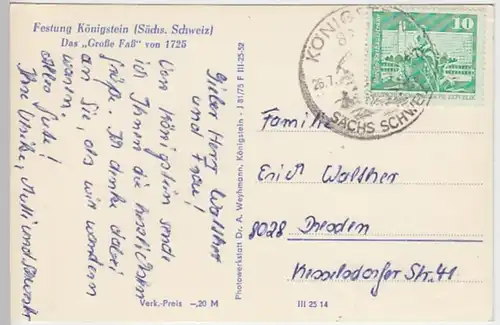 Festung Königstein (Sächs. Schweiz)
Das „Große Faß" von 1725
Lieber Herr Walther
und Frau!
Von Königstein sende
ich Ihnen die herzlichsten
Grüße. Ich denke dabei
an Sie, als wir wandern
waren.
Alles Gute!
Ihre Ulrike, Mutti und
Verk.-Preis -,20 M
Photowerkstatt Dr. A. Weyhmann, Königstein - J 81/75 F III-25-52
KÖNIGSTEIN
26.7.
SÄCHS SCHWEIZ
10
Familie
Erich Walther
8028 Dresden
Kesselsdorfer Str. 41
III 25 14